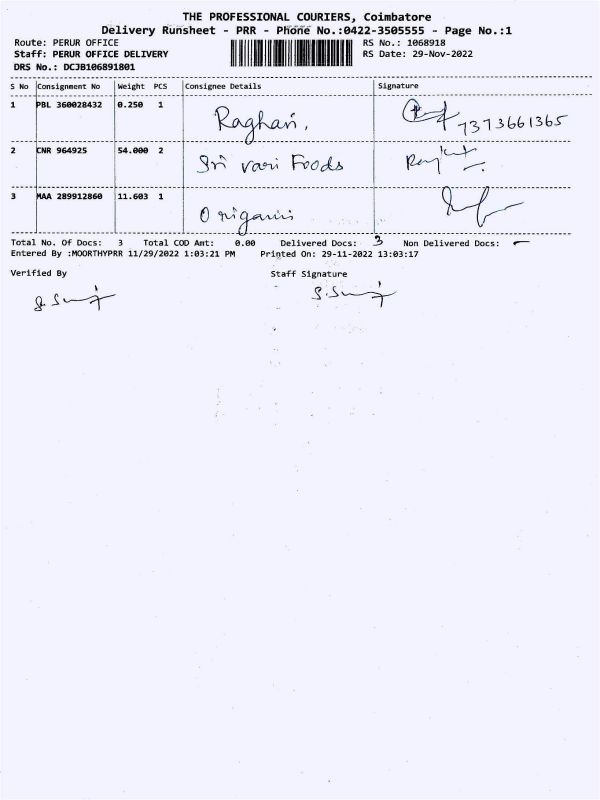 THE PROFESSIONAL COURIERS, Coimbatore
Delivery Runsheet - PRR - Phone No.:0422-3505555 - Page No.:1
Route: PERUR OFFICE RS No.: 1068918
Staff: PERUR OFFICE DELIVERY RS Date: 29-Nov-2022
DRS No.: DCJB106891801
S No Consignment No Weight PCS Consignee Details Signature
1 PBL 360028432 0.250 1 Raghavi, 7373661365
2 CNR 964925 54.000 2 Sri vari Foods
3 MAA 289912860 11.603 1
Total No. Of Docs: 3 Total COD Amt: 0.00 Delivered Docs: 3 Non Delivered Docs: -
Entered By :MOORTHYPRR 11/29/2022 1:03:21 PM Printed On: 29-11-2022 13:03:17
Verified By Staff Signature